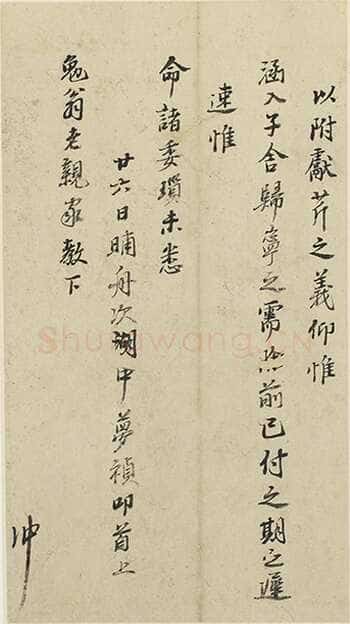 以附獻芹之義仰惟
涵入子舍歸寧之需前已付之期之遲
速惟
命諸委瑣未悉
廿六日晡舟次湖中夢禎叩首上
勉翁老親家教下
沖
Shufawang.CN